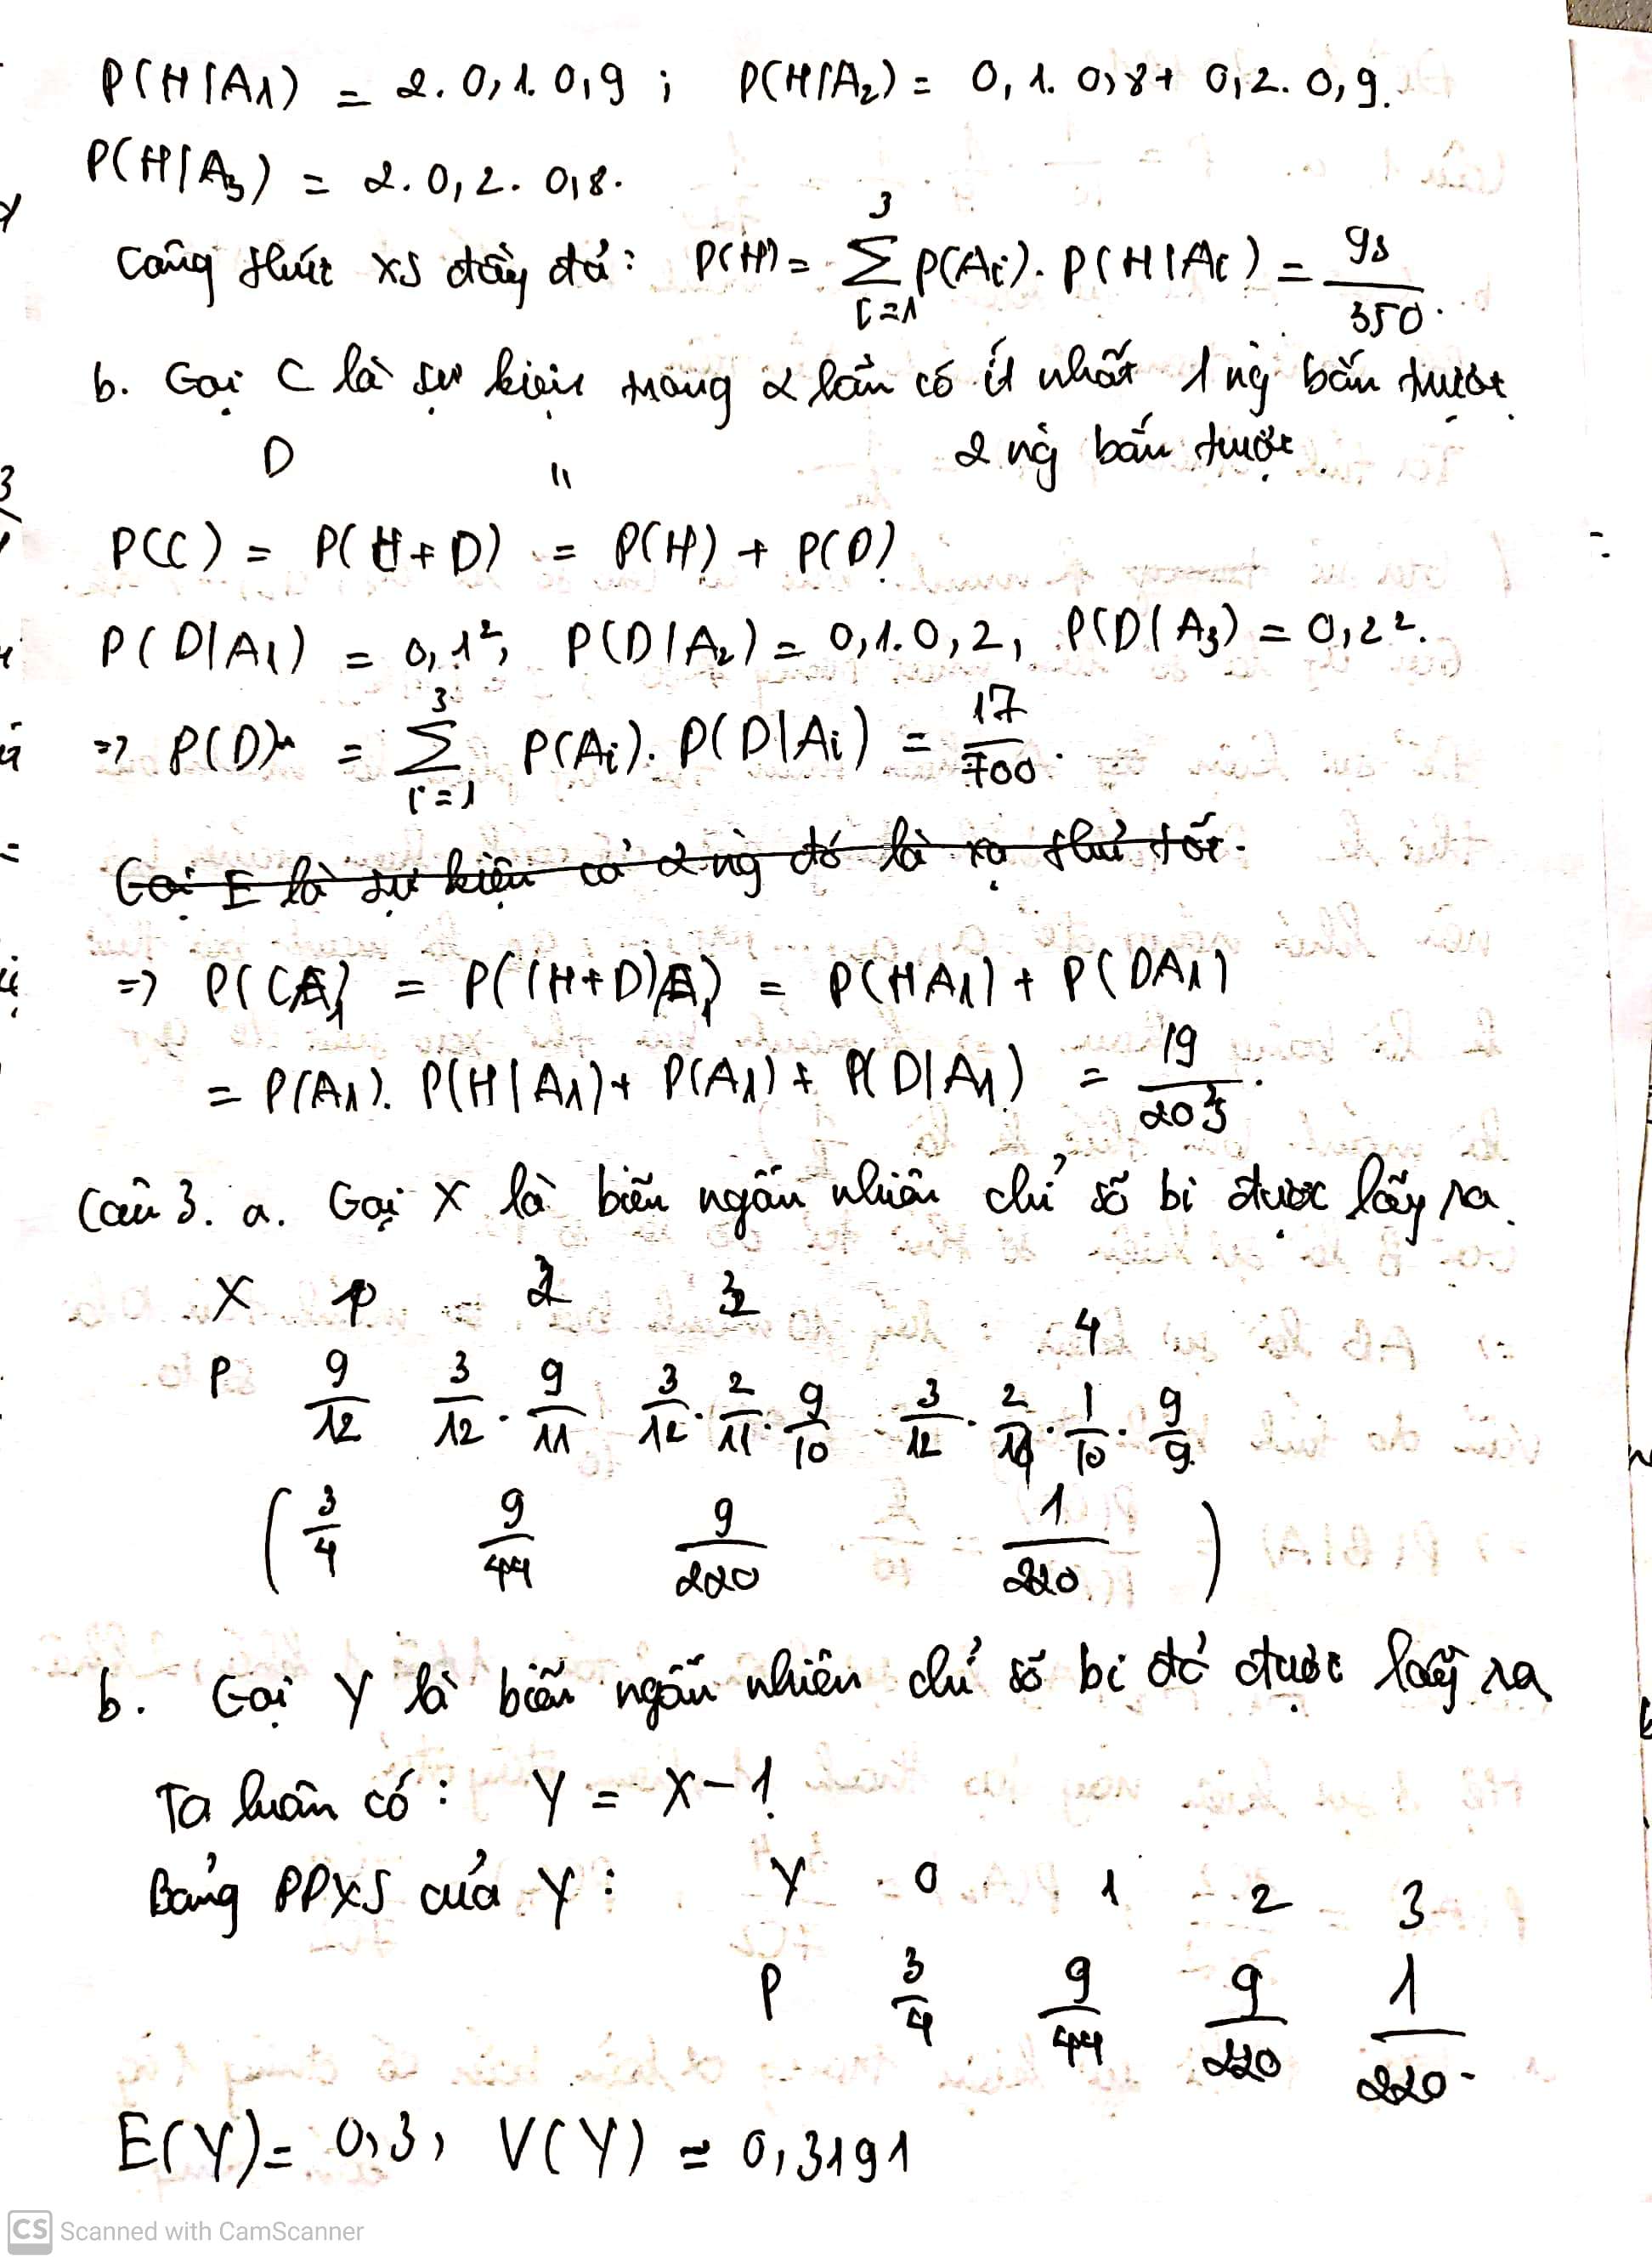 P(H|A1) = 2.0,1.0,9 ; P(H|A2) = 0,1.0,8 + 0,2.0,9.
P(H|A3) = 2.0,2.0,8.
Công thức XS đầy đủ: P(H) = 3 Σ i=1 P(Ai). P(H|Ai) = 93/350.
b. Gọi C là sự kiện trong 2 lần có ít nhất 1 ng bắn trượt.
D " 2 ng bắn trượt.
P(C) = P(H+D) = P(H) + P(D)
P(D|A1) = 0,1², P(D|A2) = 0,1.0,2, P(D|A3) = 0,2².
=> P(D) = 3 Σ i=1 P(Ai). P(D|Ai) = 17/700.
Gọi E là sự kiện cả 2 ng đó là xạ thủ tốt.
=> P(CA1) = P((H+D)A1) = P(HA1) + P(DA1)
= P(A1). P(H|A1) + P(A1) + P(D|A1) =
Câu 3. a. Gọi X là biến ngẫu nhiên chỉ số bi được lấy ra.
X 1 2 3 4
P 9/12 3/12 . 9/11 3/12 . 2/11 . 9/10 3/12 . 2/11 . 1/10 . 9/9
( 3/4 9/44 9/220 1/220 )
b. Gọi Y là biến ngẫu nhiên chỉ số bi đỏ được lấy ra
Ta luôn có : Y = X-1.
Bảng PPXS của Y : Y 0 1 2 3
P 3/4 9/44 9/220 1/220.
E(Y) = 0,3, V(Y) ≈ 0,3191
CS Scanned with CamScanner